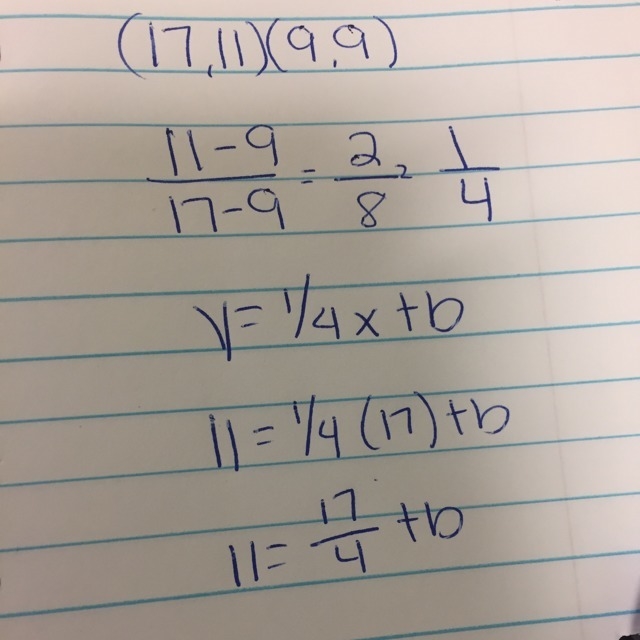 (17,11)(9,9)
11-9/17-9 = 2/8 = 1/4
y = 1/4x + b
11 = 1/4(17) + b
11 = 17/4 + b